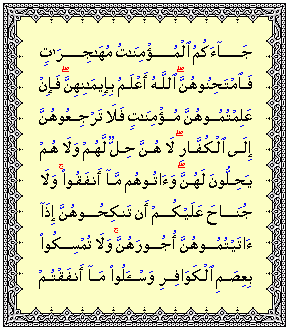 جَآءَكُمُ ٱلْمُؤْمِنَٰتُ مُهَٰجِرَٰتٍ
فَٱمْتَحِنُوهُنَّ ۖ ٱللَّهُ أَعْلَمُ بِإِيمَٰنِهِنَّ ۖ فَإِنْ
عَلِمْتُمُوهُنَّ مُؤْمِنَٰتٍ فَلَا تَرْجِعُوهُنَّ
إِلَى ٱلْكُفَّارِ ۖ لَا هُنَّ حِلٌّ لَّهُمْ وَلَا هُمْ
يَحِلُّونَ لَهُنَّ ۖ وَءَاتُوهُم مَّآ أَنفَقُوا۟ ۚ وَلَا
جُنَاحَ عَلَيْكُمْ أَن تَنكِحُوهُنَّ إِذَآ
ءَاتَيْتُمُوهُنَّ أُجُورَهُنَّ ۚ وَلَا تُمْسِكُوا۟
بِعِصَمِ ٱلْكَوَافِرِ وَسْـَٔلُوا۟ مَآ أَنفَقْتُمْ